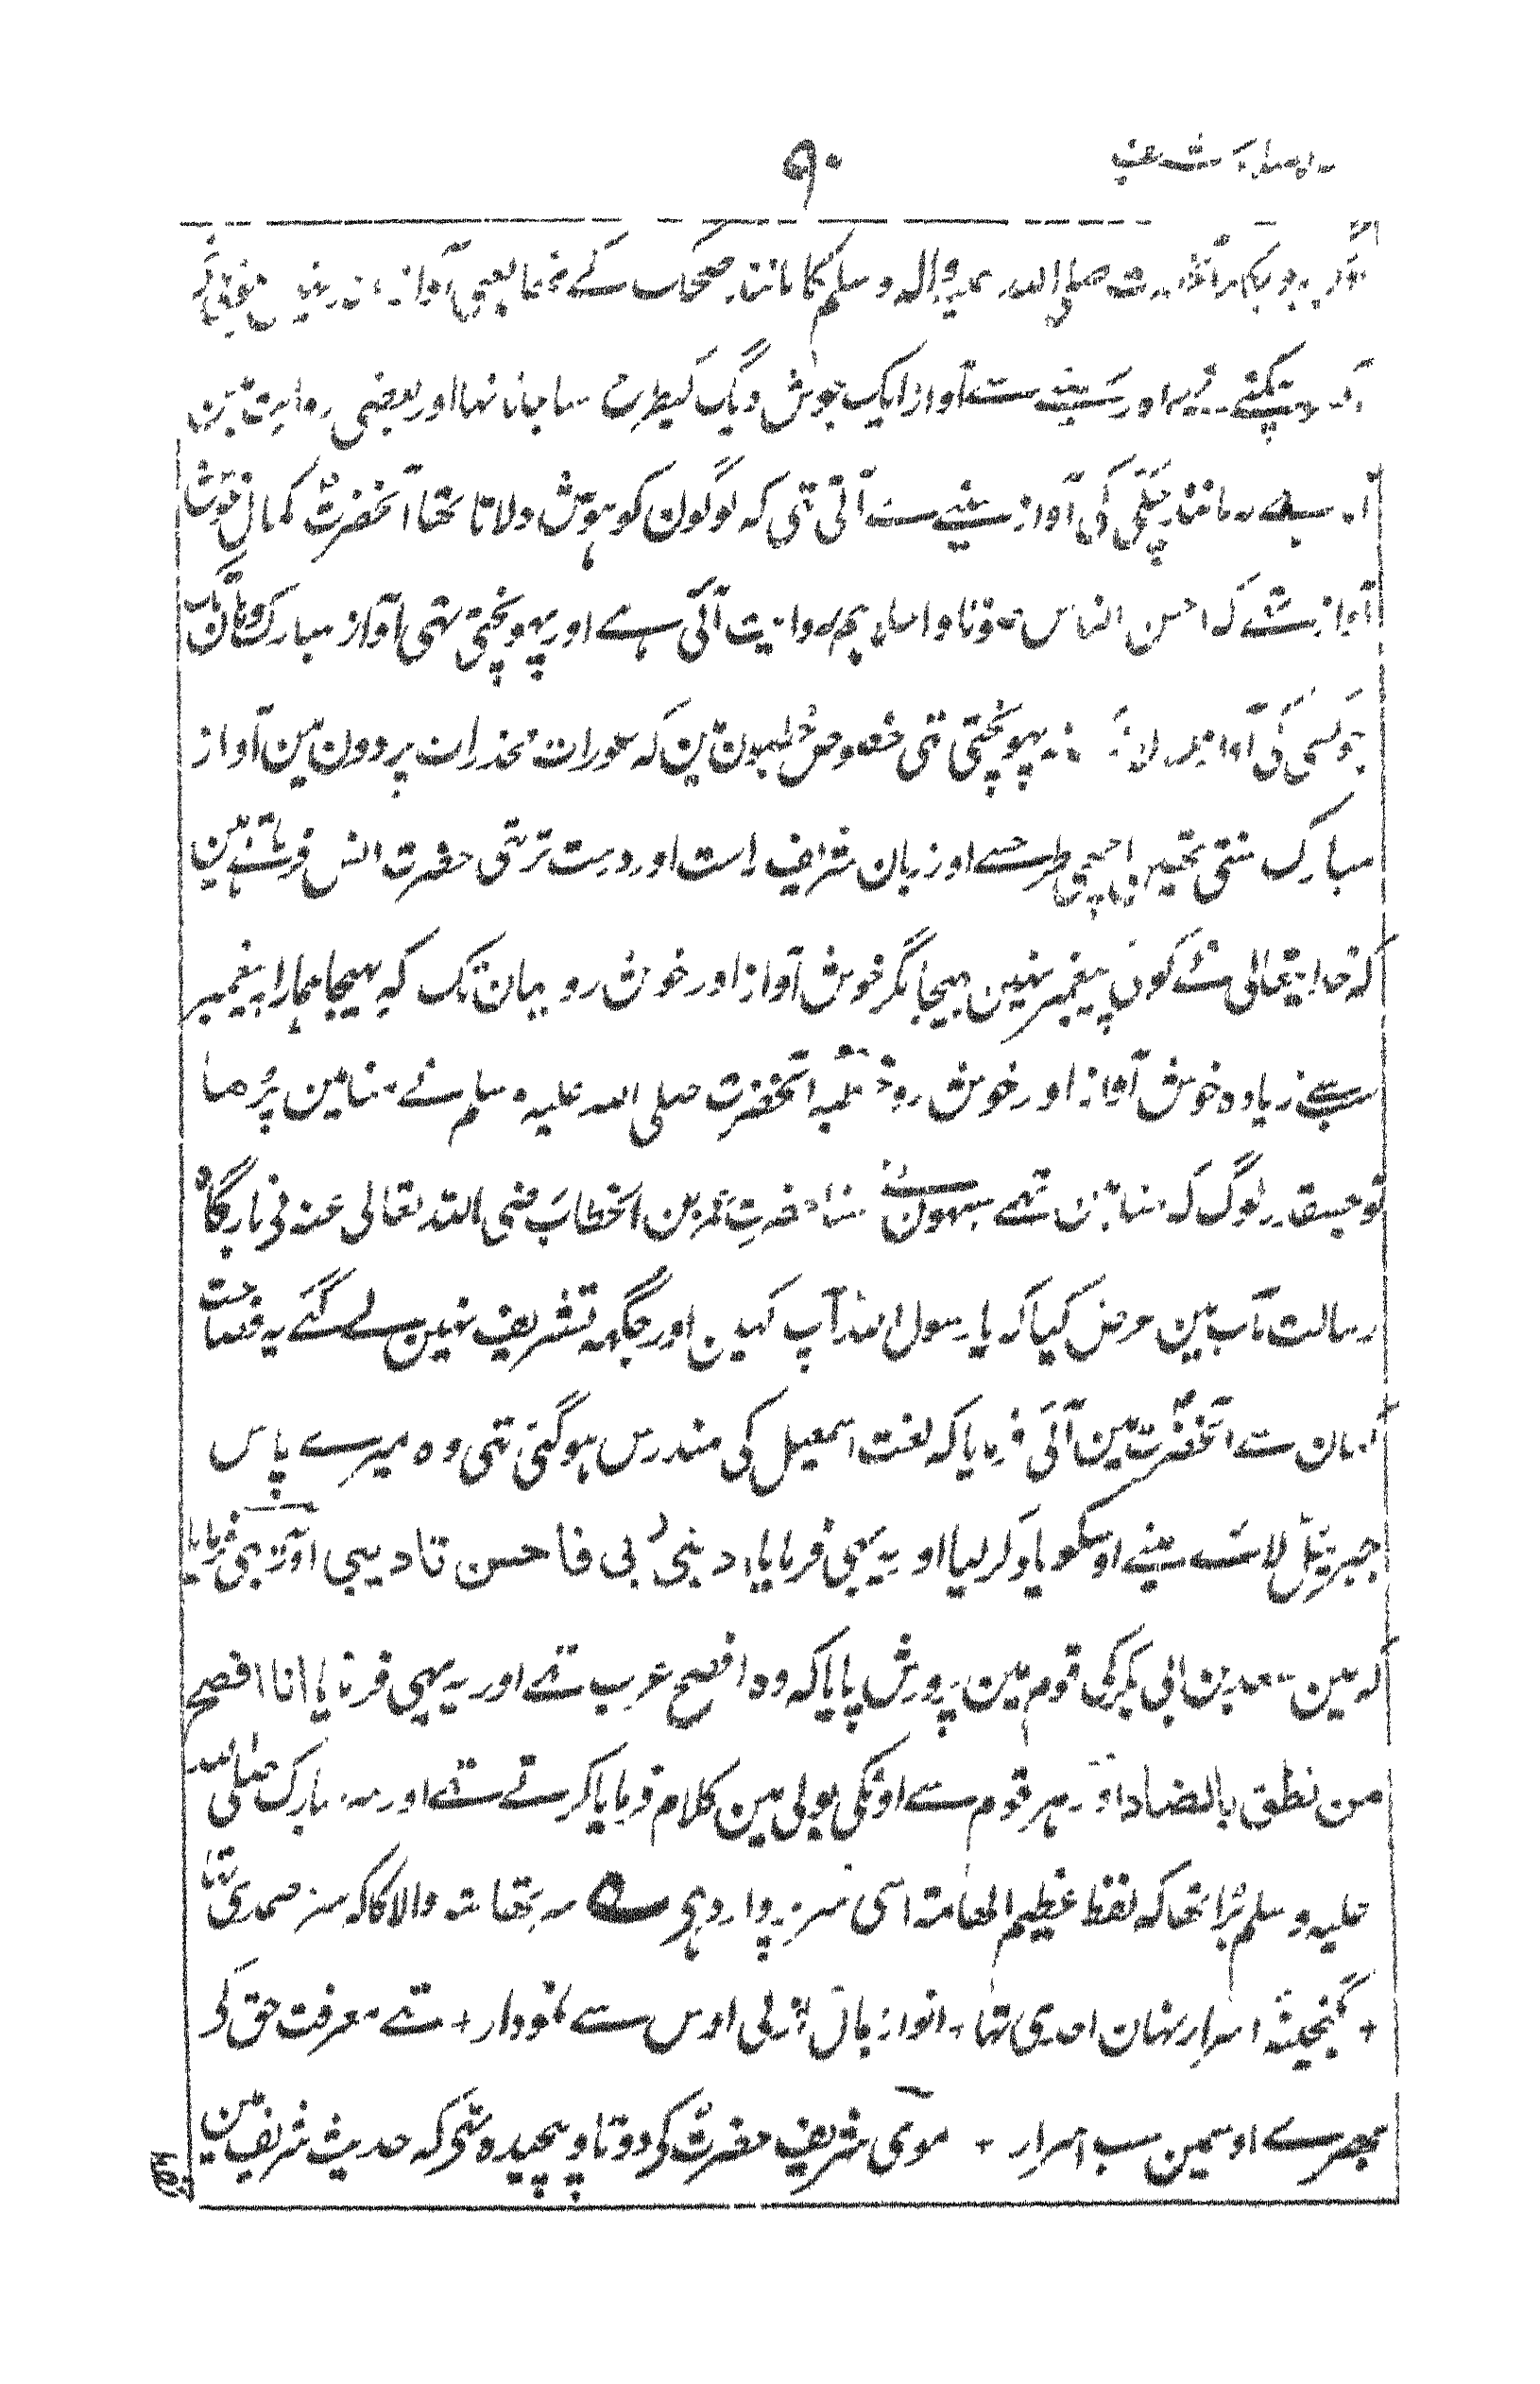 ۹۰
صلی اللہ وآلہ وسلم کا مانند ضحک کے تھا یعنی آواز
اور سینے سے آواز ایک جوش دیگ کیطرح سنا جاتا تھا اور بعضی روایت مین
مانند چکّی کی آواز سینے سے آتی تھی کہ لوگون کو ہوش دلاتا تھا آنحضرت کمال خوش
آواز تھے کہ احسن الناس صوتا و آیا ہے روایت آئی ہے اور پہونچتی تھی آواز مبارک وہان تک
جو کسی کی آواز نہ پہونچتی تھی خصوص خطبون مین کہ عورات مخدرات پردون مین آواز
مبارک سنتی تھین اچھی طرحسے اور زبان شریف راست اور درست تر تھی حضرت انس فرماتے ہین
کہ خدایتعالی نے کوئی پیغمبر نہین بھیجا مگر خوش آواز اور خوش رو یہان تک کہ بھیجا ہمارا پیغمبر
سب سے زیادہ خوش آواز اور خوش رو خطبہ آنحضرت صلی اللہ علیہ وسلم نے منا مین پڑھا
تو جسقدر لوگ کہ منا مین تھے سبہون نے سنا حضرت عمر بن الخطاب رضی اللہ تعالی عنہ نی بارگاہ
رسالت مآب مین عرض کیا کہ یا رسول اللہ آپ کہین اور جگہہ تشریف نہین لے گئے یہ فصاحت
کہان سے آنحضرت مین آئی فرمایا کہ لغت اسمعیل کی مندرس ہوگئی تھی وہ میرے پاس
جبرئیل لائے مینے اوسکو یاد کرلیا اور یہ بھی فرمایا ادبنی ربی فاحسن تادیبی اور یہ بھی فرمایا
کہ مین سعد بن ابی بکر کی قوم مین پرورش پایا کہ وہ افصح عرب تھے اور یہ بھی فرمایا انا افصح
من نطق بالضاد اور ہر قوم سے اونکی بولی مین کلام فرمایا کرتے تھے اور سر مبارک صلی اللہ
علیہ وسلم بڑا تھا کہ لفظ عظیم الھامۃ اسی سر پر وارد ہی ؎ سر تھا شہ والا کا کہ سر صمدی تھا
+ گنجینۂ اسرار نہان احدی تھا + انوار جمال ازلی اوس سے نمودار + تھے معرفت حق کے
بھرے اوسمین سب اسرار + موی شریف حضرت کی دوتا و پیچیدہ تھی کہ حدیث شریف مین